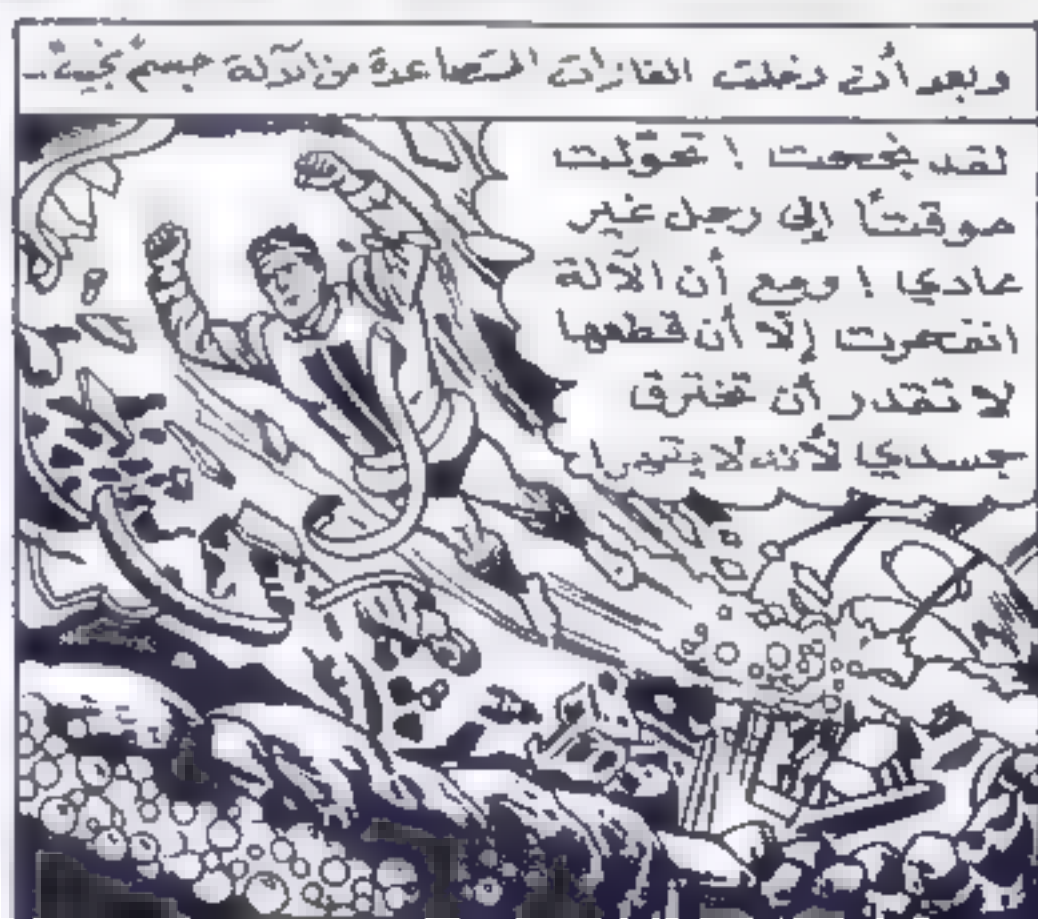 وبعد أن دخلت الغازات المتصاعدة من الآلة جسم نجيب..
لقد نجحت ! تحوّلت
موقتاً إلى رجل غير
عادي ! ومع أن الآلة
انفجرت إلّا أن قطعها
لا تقدر أن تخترق
جسدي لأنه لا يتهرأ